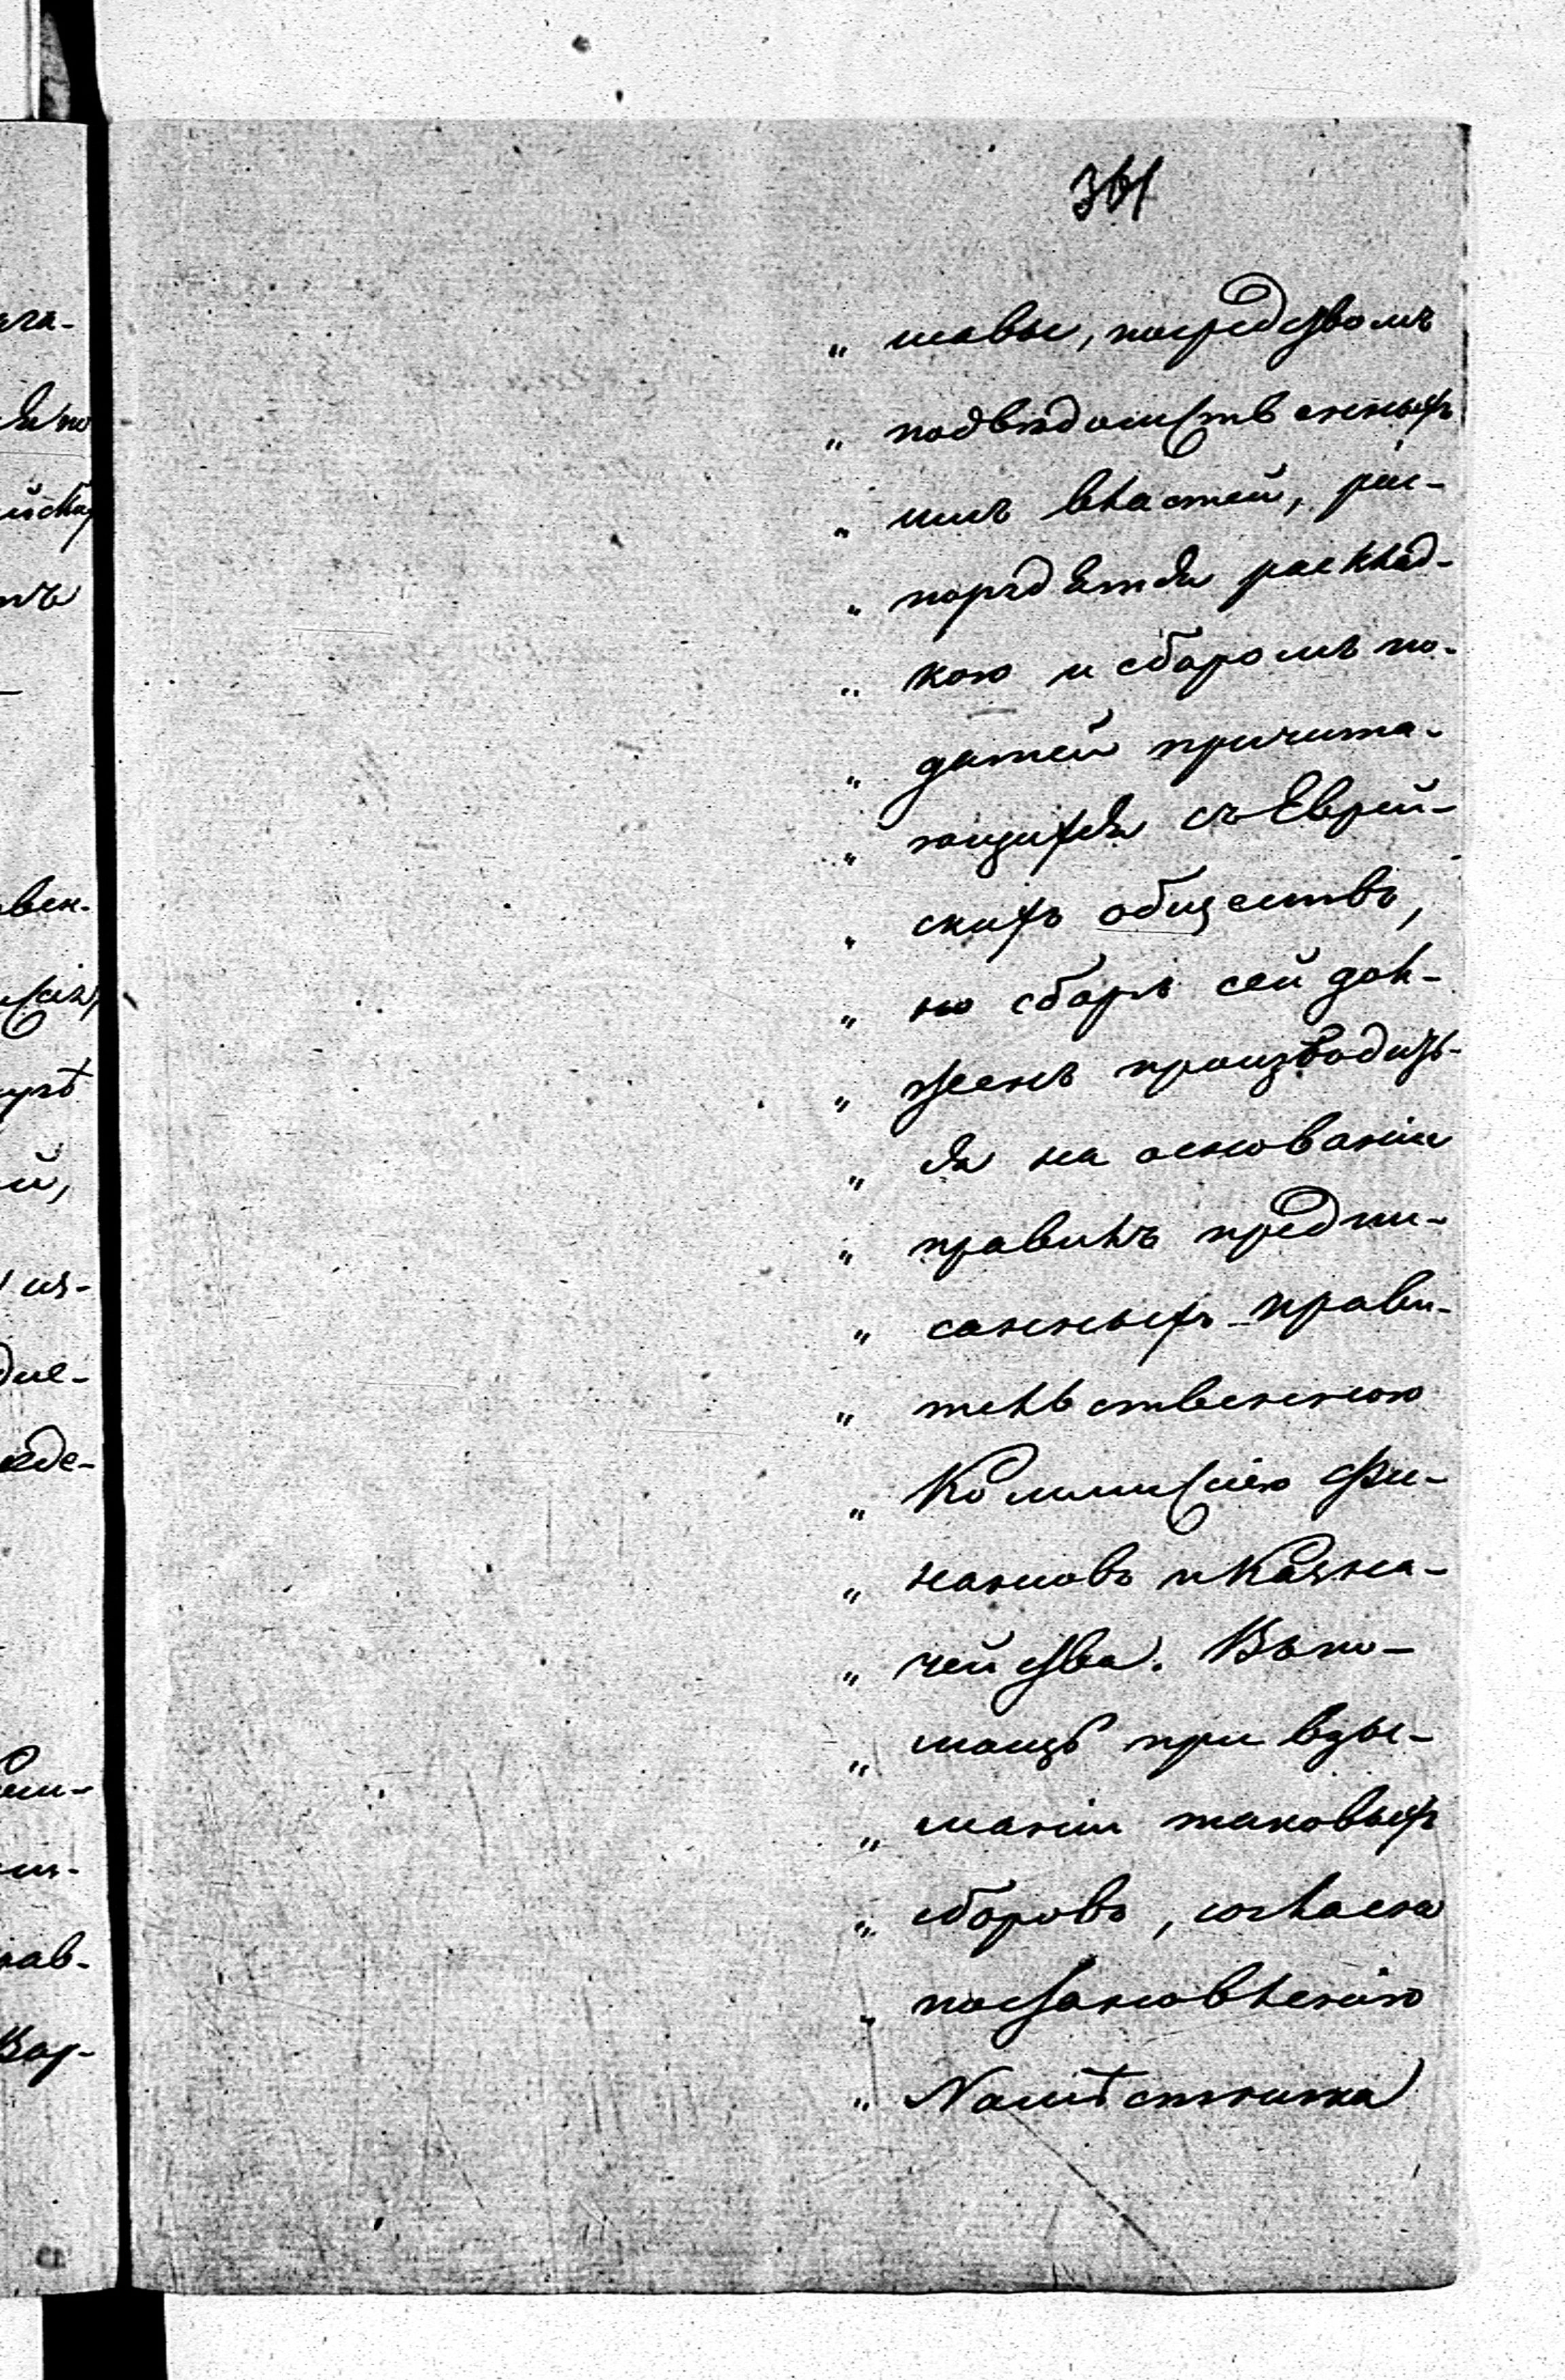 361
„ шавы, посредствомъ
„ подвѣдомственныхъ
„ имъ властей, рас-
„ порядятся расклад-
„ кою и сборомъ по-
„ датей причита-
„ ющихся съ Еврей-
„ скихъ обществъ,
„ но сборъ сей дол-
„ женъ производить-
„ ся на основаніи
„ правилъ предпи-
„ санныхъ Прави-
„ тельственною
„ Коммиссіею Фи-
„ нансовъ и Казна-
„ чейства. Въ по-
„ мощь при взы-
„ маніи таковыхъ
„ сборовъ, согласно
„ постановленію
„ Намѣстника